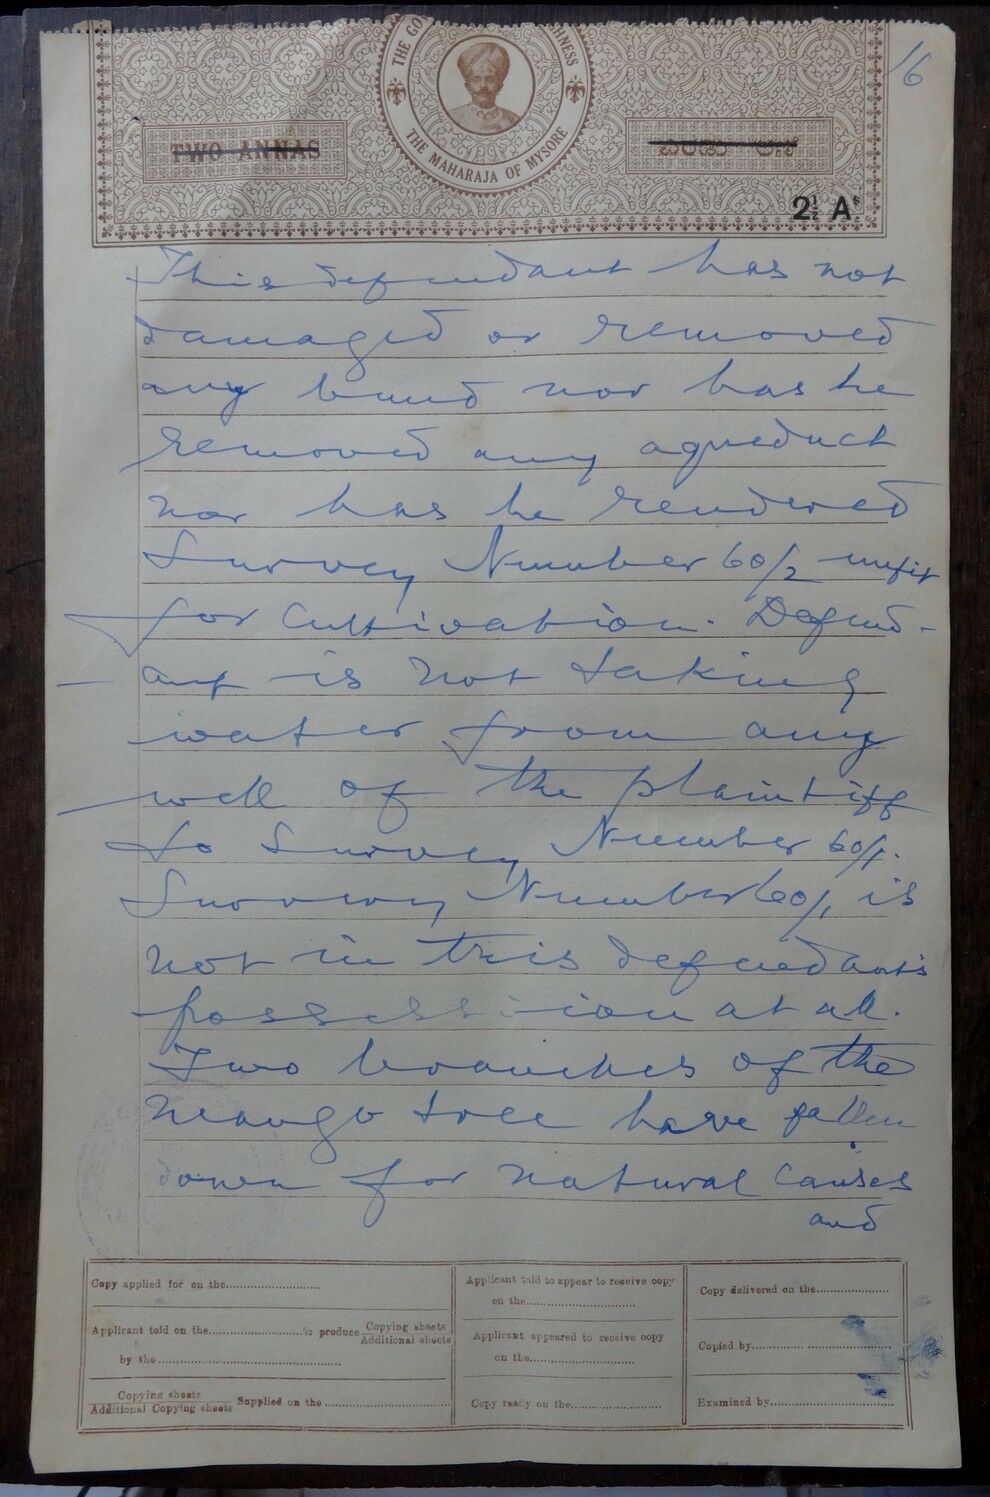 16
THE GO
HNESS
THE MAHARAJA OF MYSORE
TWO ANNAS
2½ As
This defendant has not
damaged or removed
any bund nor has he
removed any aqueduct
nor has he rendered
Survey Number 60/2 unfit
for Cultivation. Defend-
ant is not taking
water from any
well of the plaintiff
to Survey Number 60/1.
Survey Number 60/1 is
not in this defendant's
possession at all.
Two branches of the
mango tree have fallen
down for natural causes
and
Copy applied for on the
Applicant told on the to produce Copying sheets
Additional sheets
by the
Copying sheets
Additional Copying sheets Supplied on the
Applicant told to appear to receive copy
on the
Applicant appeared to receive copy
on the
Copy ready on the
Copy delivered on the
Copied by
Examined by